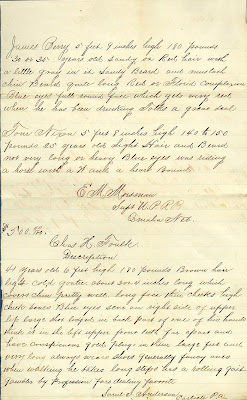 James Berry 5 feet 9 inches high 180 pounds
30 or 35 years old Sandy or Red hair with
a little gray in it Sandy Beard and mustach
chin Beard quite long Red or Florid Complexion
Blue eyes full round face which gets very red
when he has been drinking Talks a good deal
Tom Nixon 5 feet 8 inches high 140 to 150
pounds 25 years old Light Hair and Beard
not very long or heavy Blue eyes was riding
a horse with a
E. M. Morsman
Supt U.P.R.R
Omaha Neb.
$500.
Chas H.
Description
41 years old 6 feet high 180 pounds Brown hair
light cold goatee about 3 or 4 inches long which
covers chin pretty well long face thin cheeks high
cheek bones Blue eyes scar on right side of upper
lip large shot lodged in back part of one of his hands
think it is the left upper front teeth far apart and
have conspicuous gold plugs in them large feet and
very long always wears shoes generally fancy ones
when walking he takes long steps has a rolling gait
gambler by Profession faro dealing favorite
Saml C. Anderson